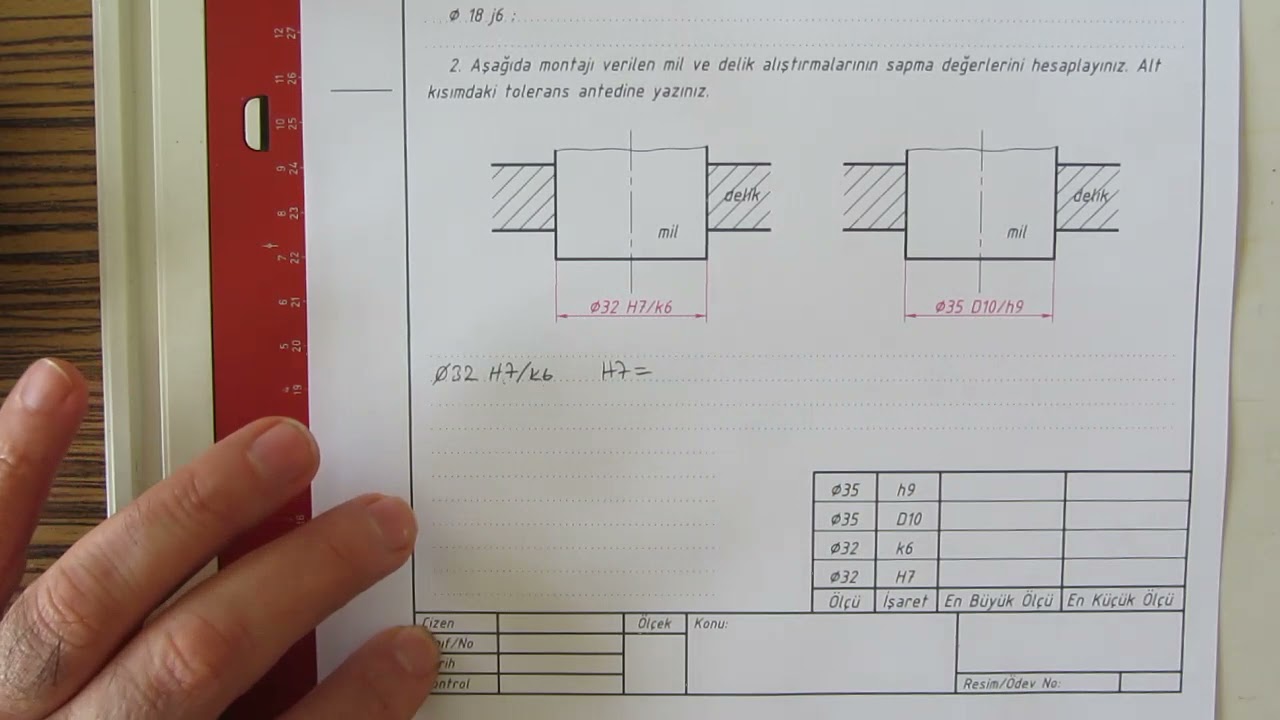 Ø 18 j6 :
2. Aşağıda montajı verilen mil ve delik alıştırmalarının sapma değerlerini hesaplayınız. Alt
kısımdaki tolerans antedine yazınız.
delik
mil
Ø32 H7/k6
delik
mil
Ø35 D10/h9
Ø32 H7/k6 H7=
Ø35 h9
Ø35 D10
Ø32 k6
Ø32 H7
Ölçü İşaret En Büyük Ölçü En Küçük Ölçü
Çizen Ölçek Konu:
Resim/Ödev No:
12 27
11 26
10 25
9 24
8 23
7 22
6 21
5 20
4 19